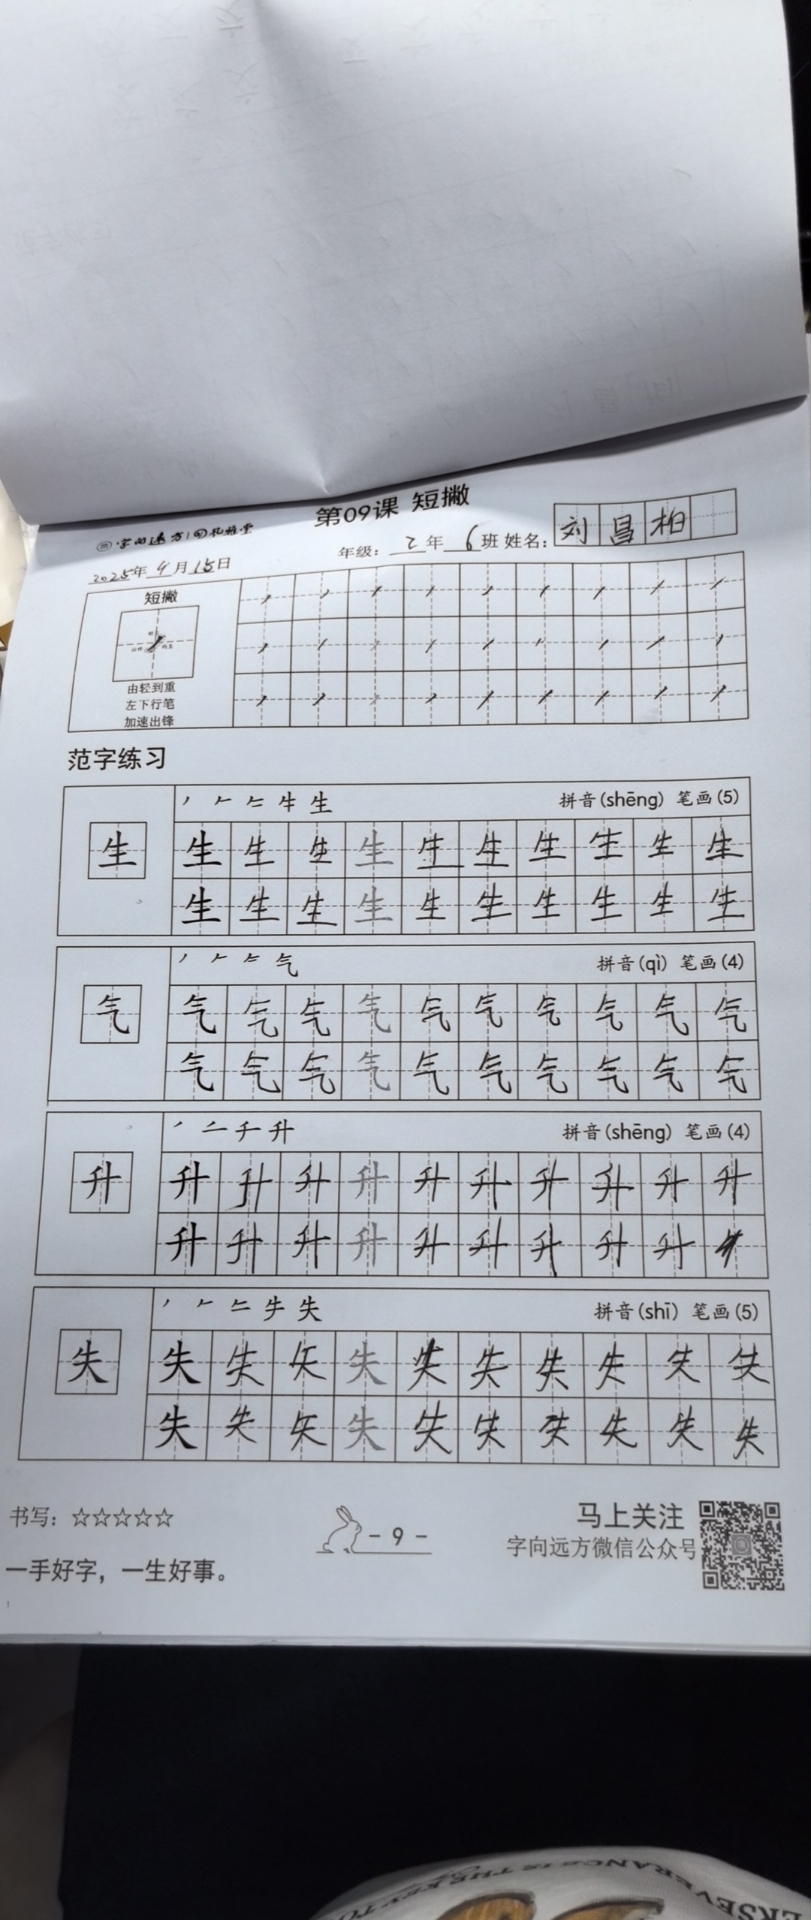 第09课 短撇
字向远方
2025年4月15日 年级：2年6班 姓名：刘昌柏
短撇
由轻到重
左下行笔
加速出锋
范字练习
牛 生 拼音(shēng) 笔画(5)
生 生 生 生 生 生 生 生 生 生 生
生 生 生 生 生 生 生 生 生 生
气 拼音(qì) 笔画(4)
气 气 气 气 气 气 气 气 气 气 气
气 气 气 气 气 气 气 气 气 气
千 升 拼音(shēng) 笔画(4)
升 升 升 升 升 升 升 升 升 升 升
升 升 升 升 升 升 升 升 升
失 拼音(shī) 笔画(5)
失 失 失 失 失 失 失 失 失 失 失
失 失 失 失 失 失 失 失 失 失
书写：☆☆☆☆☆ - 9 - 马上关注
字向远方微信公众号
一手好字，一生好事。